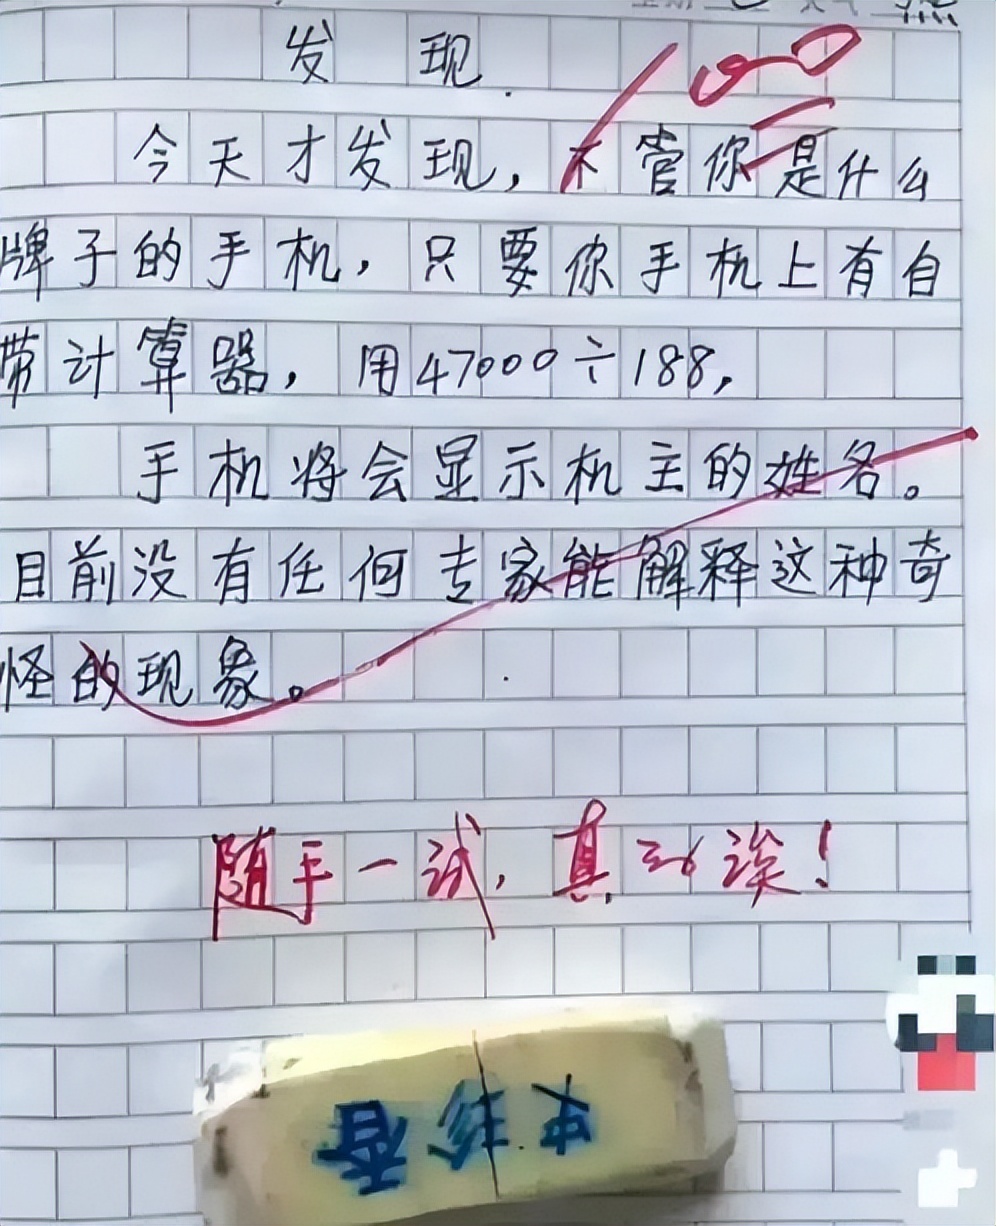 发现
100
今天才发现，不管你是什么
牌子的手机，只要你手机上有自
带计算器，用47000÷188，
手机将会显示机主的姓名。
目前没有任何专家能解释这种奇
怪的现象。
随手一试，真的诶！
史珍香